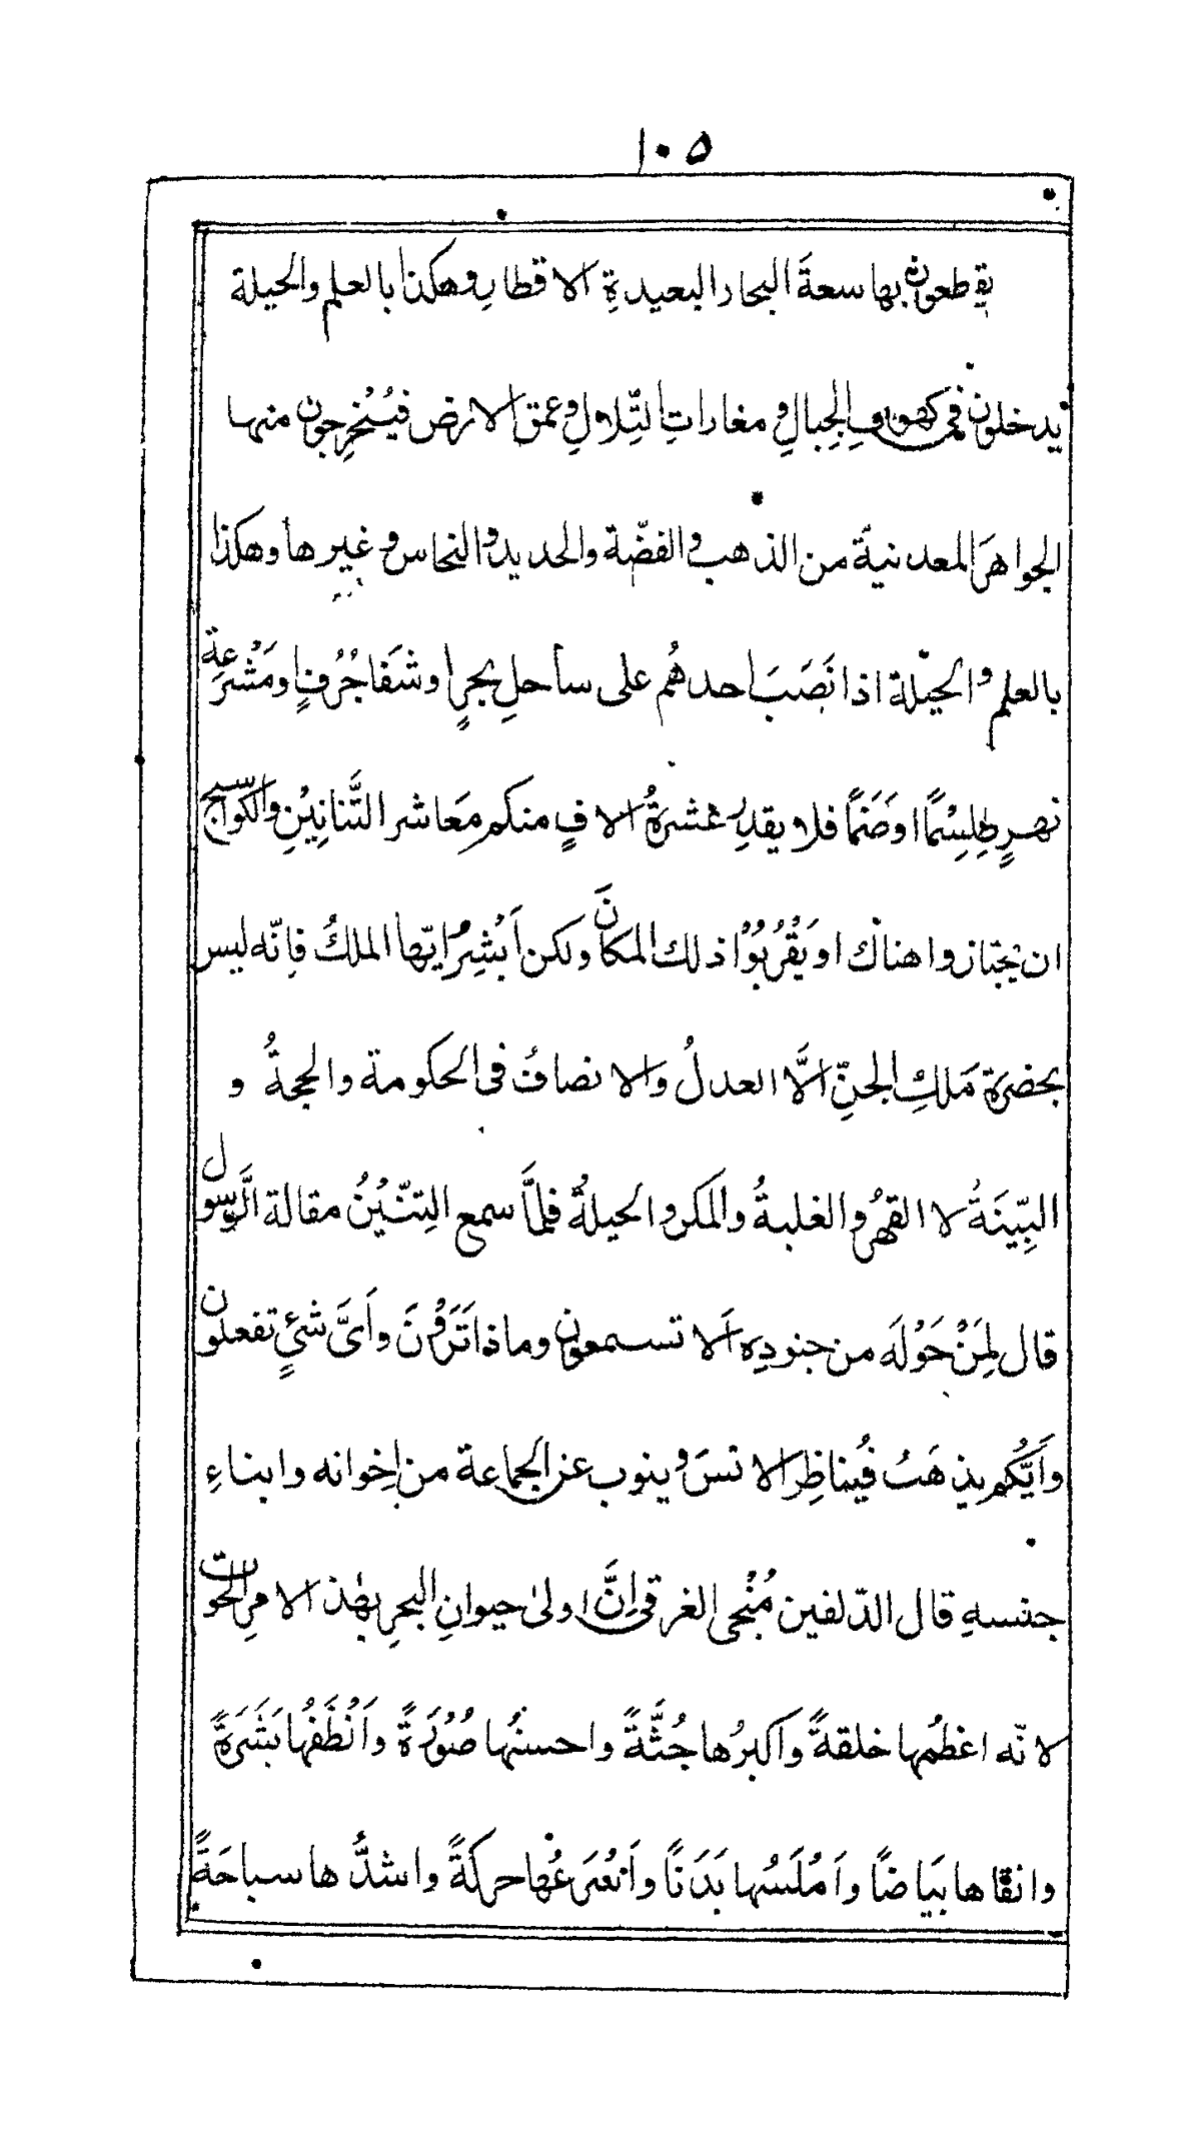 ١٠٥
يقطعون بها سعةَ البحار البعيدةِ الاقطارِ وهكذا بالعلم والحيلة
يدخلون فى كهوفِ الجِبالِ ومغاراتِ التِّلالِ وعمق الارض فيُسْخرِجون منها
الجواهرَ المعدنيةَ من الذهب والفضّة والحديد والنحاس وغيرها وهكذا
بالعلم والحيلة اذا نَصَبَ احدهُم على ساحلِ بحرٍ او شَفا جُرُفٍ او مَشْرَعةِ
نهرٍ طِلِسْمًا او صَنَمًا فلا يقدِر عشرةُ الافٍ منكم مَعاشر التَّنانِيْنِ والكَواسج
ان يجْتازوا هناك او يَقْرُبُوْا ذلك المكانَ ولكن اَبْشِرْ ايّها الملكُ فانّه ليس
بحضرَةِ مَلكِ الجنِّ الَّا العدلُ والانصافُ فى الحكومة والحجةُ و
البّيِنَةُ لا القهرُ والغلبةُ والمكر والحيلةُ فلمَّا سمع التِنّيْنُ مقالة الرَّسول
قال لِمَنْ حَوْلَه من جنودِه اَلا تسمعون وما ذا تَرَوْنَ واَىَّ شئٍ تفعلون
واَيُّكم يذهَبُ فيُناظِر الانسَ وينوب عن الجماعة من اِخوانه وابناءِ
جنسهِ قال الدّلفين مُنْجى الغرقى اِنَّ اولىٰ حيوانِ البحرِ بهٰذ الامرِ الحوت
لانّه اعظمُها خلقةً واكبرُها جُثَّةً واحسنُها صُوْرَةً واَنْظَفُها بَشَرَةً
وانقاها بَيَاضًا واَمْلَسُها بَدَنًا واَسْرَعُها حركةً واشدُّها سباحَةً